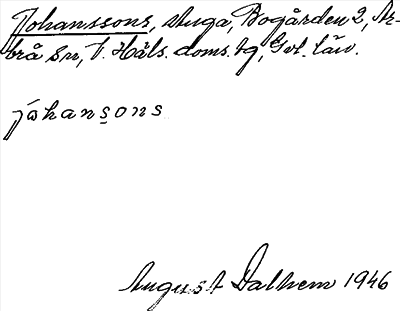 Johanssons, stuga, Bogården 2, Ar-
brå sn, V. Häls. doms. tg, Gvl. län.
jòhansons
August Dalhem 1946